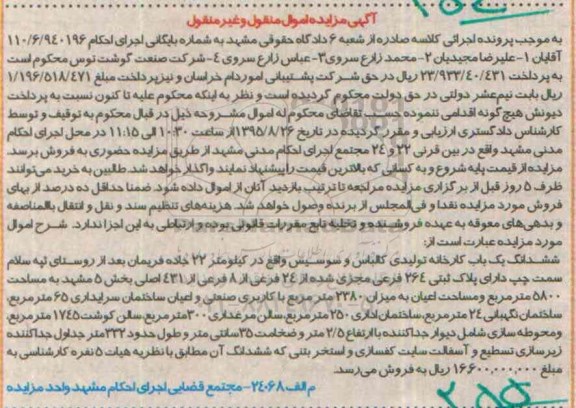 آگهی مزایده اموال منقول و غیر منقول
به موجب پرونده اجرائی کلاسه صادره از شعبه ۶ دادگاه حقوقی مشهد به شماره بایگانی اجرای احکام ۱۱۰/۶/۹۴۰۱۹۶
آقایان ۱- علیرضا مجیدیان ۲- محمد زارع سروی ۳- عباس زارع سروی ۴- شرکت صنعت گوشت توس محکوم است
به پرداخت ۲۳/۹۳۳/۴۰/۴۳۱ ریال در حق شرکت پشتیبانی امور دام خراسان و نیز پرداخت مبلغ ۱/۱۹۶/۵۱۸/۴۷۱
ریال بابت نیم عشر دولتی در حق دولت محکوم گردیده است و نظر به اینکه محکوم علیه تا کنون نسبت به پرداخت
دیونش هیچ گونه اقدامی ننموده حسب تقاضای محکوم له اموال مشروحه ذیل در قبال محکوم به توقیف و توسط
کارشناس دادگستری ارزیابی و مقرر گردیده در تاریخ ۱۳۹۵/۸/۲۶ از ساعت ۱۰:۳۰ الی ۱۱:۱۵ در محل اجرای احکام
مدنی مشهد واقع در بین قرنی ۲۲ و ۲۴ مجتمع اجرای احکام مدنی مشهد از طریق مزایده حضوری به فروش برسد.
مزایده از قیمت پایه شروع و به کسانی که بالاترین قیمت را پیشنهاد نمایند واگذار خواهد شد. طالبین به خرید می توانند
ظرف ۵ روز قبل از برگزاری مزایده مراجعه تا ترتیب بازدید آنان از اموال داده شود. ضمنا حداقل ده درصد از بهای
فروش مورد مزایده نقدا و فی المجلس از برنده وصول خواهد شد. هزینه های تنظیم سند و نقل و انتقال بالمناصفه
و بدهی های معوقه به عهده فروشنده و تخلیه تابع مقررات قانونی بوده و ارتباطی به این اجرا ندارد. شرح اموال
مورد مزایده عبارت است از:
ششدانگ یک باب کارخانه تولیدی کالباس و سوسیس واقع در کیلومتر ۲۲ جاده فریمان بعد از روستای تپه سلام
سمت چپ دارای پلاک ثبتی ۲۶۴ فرعی مجزی شده از ۲۴ فرعی از ۸ فرعی از ۴۳۱ اصلی بخش ۵ مشهد به مساحت
۵۸۰۰ متر مربع و مساحت اعیان به میزان ۲۳۸۰ متر مربع با کاربری صنعتی و اعیان ساختمان سرایداری ۶۵ متر مربع،
ساختمان نگهبانی ۲۴ متر مربع، ساختمان اداری ۲۵۰ متر مربع، سالن مرغداری ۳۰۰ متر مربع سالن گوشت ۱۷۴۵ متر مربع،
و محوطه سازی شامل دیوار جداکننده با ارتفاع ۲/۵ متر و ضخامت ۳۵ سانتی متر و طول حدود ۳۳۲ متر جداول جداکننده
زیرسازی تسطیع و آسفالت سایت کفسازی و استخر بتنی که ششدانگ آن مطابق با نظریه هیات ۵ نفره کارشناسی به
مبلغ ۱۶،۶۰۰،۰۰۰،۰۰۰ ریال به فروش می رسد.
م الف ۲۴۰۶۸- مجتمع قضایی اجرای احکام مشهد واحد مزایده